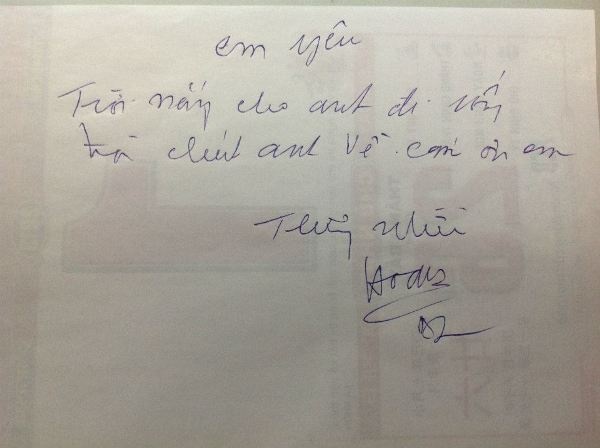 em yêu
Trời nắng cho anh đi uống
trà chút anh về. cảm ơn em
Thương nhiều